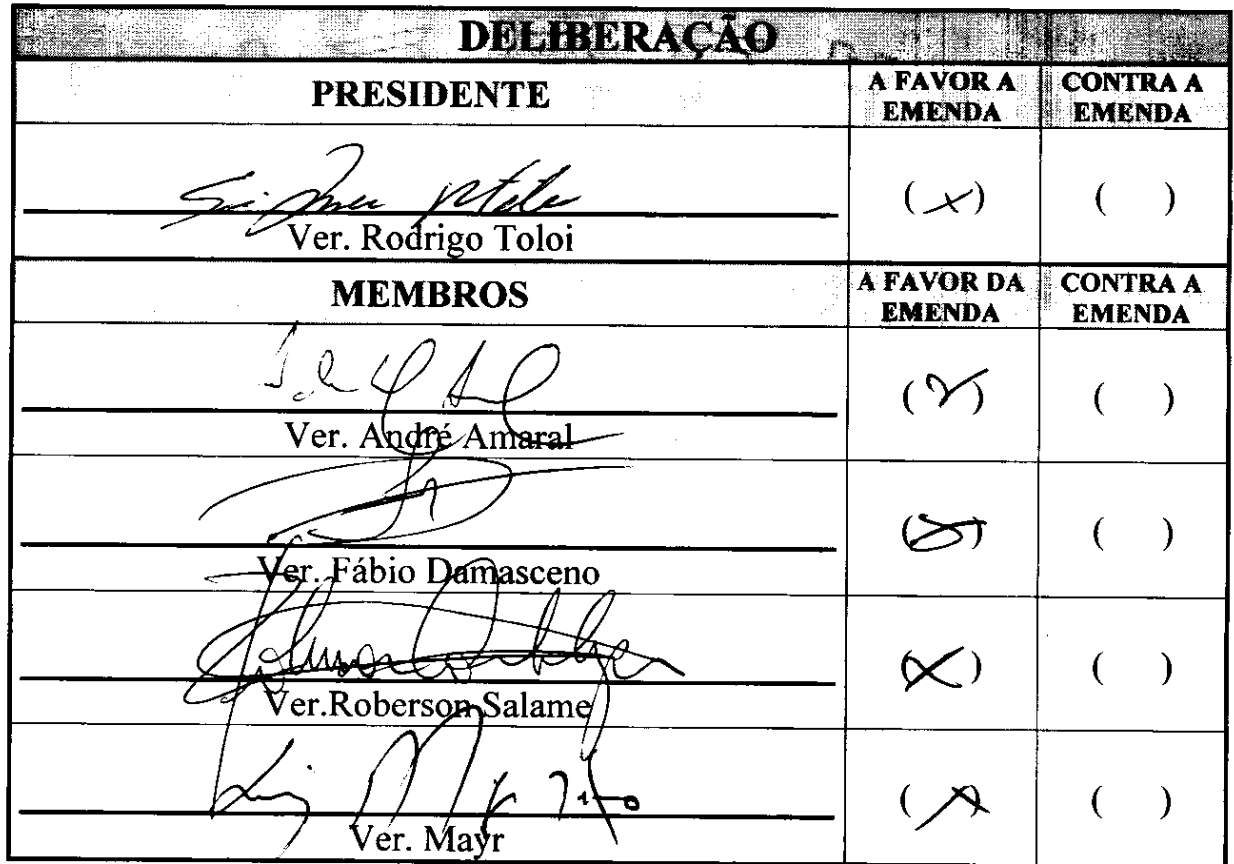 DELIBERAÇÃO
PRESIDENTE
A FAVOR A
EMENDA
CONTRA A
EMENDA
(x) ( )
Ver. Rodrigo Toloi
MEMBROS
A FAVOR DA
EMENDA
CONTRA A
EMENDA
(x) ( )
Ver. André Amaral
(x) ( )
Ver. Fábio Damasceno
(x) ( )
Ver.Roberson Salame
(x) ( )
Ver. Mayr